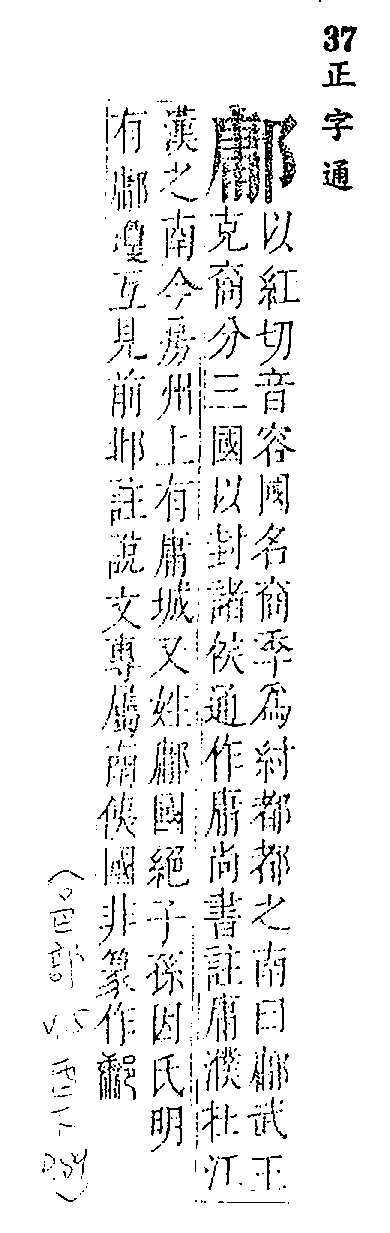 37正字通
鄘以紅切音容國名商季為紂都都之南曰鄘武王
克商分三國以封諸侯通作庸尚書註庸濮在江
漢之南今房州上有庸城又姓鄘國絕子孫因氏明
有鄘瓊互見前邶註說文專屬南侯國非篆作
(邑部
酉下